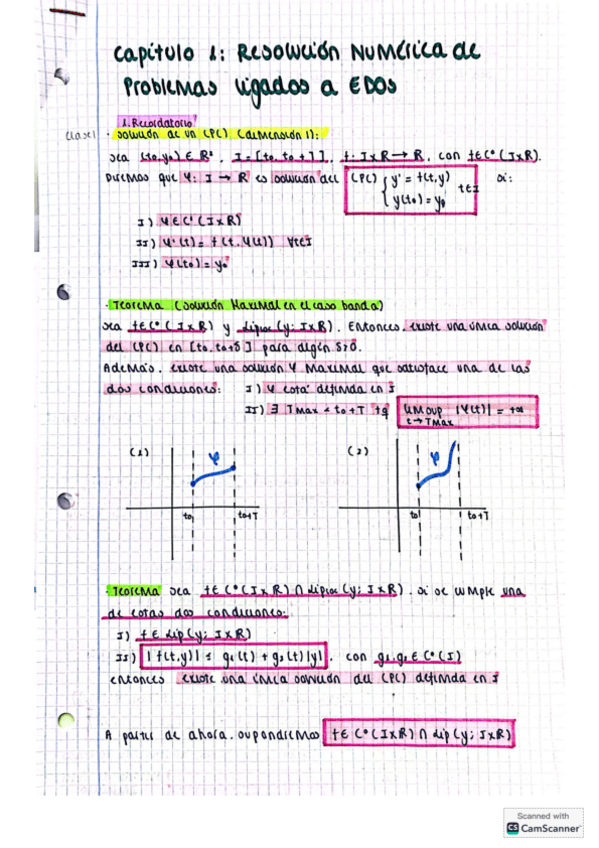 Capítulo 1: Resolución Numérica de
Problemas ligados a EDOS
1. Recordatorio
Clase 1 · Solución de un (PC) (dimensión 1):
Sea (t0,y0) ∈ R², I = [t0, t0+T], f: I×R → R, con f∈C⁰(I×R).
Diremos que φ: I → R es solución del (PC) { y' = f(t,y) t∈I si:
y(t0) = y0
I) φ∈C¹(I×R)
II) φ'(t) = f(t,φ(t)) ∀t∈I
III) φ(t0) = y0
· Teorema (solución Maximal en el caso banda)
Sea f∈C⁰(I×R) y Liploc(y; I×R). Entonces, existe una única solución
del (PC) en [t0, t0+δ] para algún δ>0.
Además, existe una solución φ maximal que satisface una de las
dos condiciones: I) φ está definida en I
II) ∃ Tmax < t0+T tq lim sup |φ(t)| = +∞
t→Tmax
(1) φ (2) φ
t0 t0+T t0 t0+T
· Teorema Sea f∈C⁰(I×R) ∩ Liploc(y; I×R). Si se cumple una
de estas dos condiciones:
I) f∈Lip(y; I×R)
II) |f(t,y)| ≤ g1(t) + g2(t)|y|, con g1,g2∈C⁰(I)
entonces existe una única solución del (PC) definida en I
A partir de ahora, supondremos f∈C⁰(I×R) ∩ Lip(y; I×R)
Scanned with
CS CamScanner